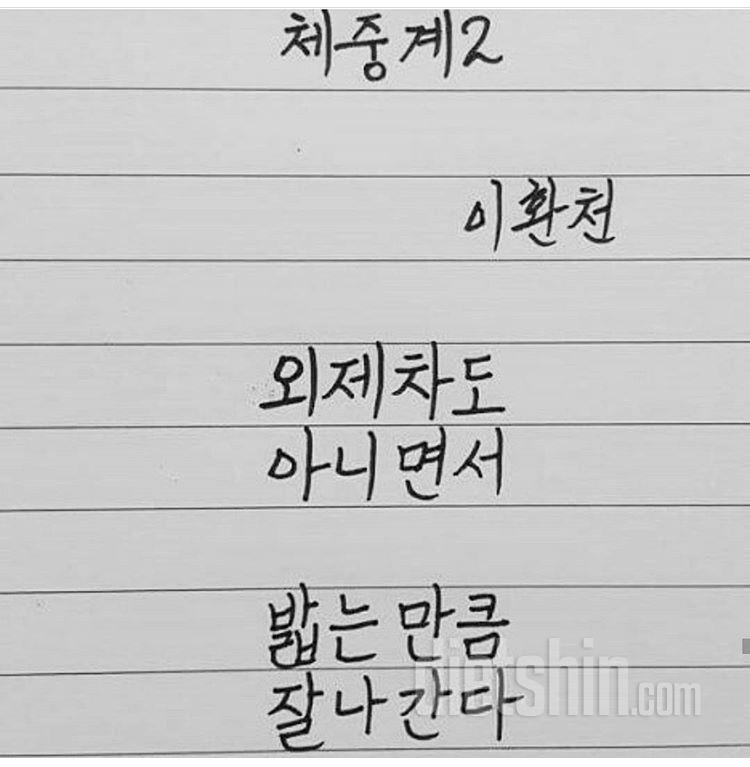 체중계2
이환천
외제차도
아니면서
밟는 만큼
잘나간다
dietshin.com